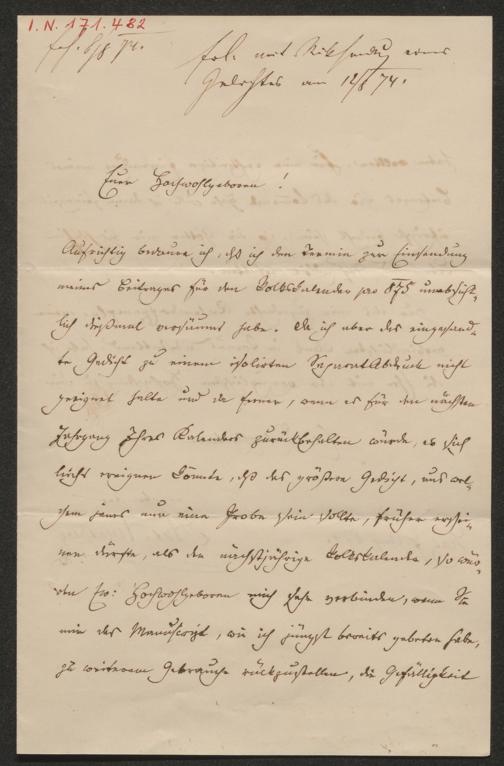 I.N. 171.482
erh. 6/8 74.
erl. mit Rücksendung eines
Gedichtes am 12/8 74.
Euer Hochwohlgeboren!
Aufrichtig bedaure ich, daß ich den Termin zur Einsendung
meines Beitrages für den Volkskalender pro 875 unabsicht-
lich dießmal versäumt habe. Da ich aber das eingesand-
te Gedicht zu einem isolirten Separatabdruck nicht
geeignet halte und da ferner, wenn es für den nächsten
Jahrgang Ihres Kalenders zurückbehalten würde, es sich
leicht ereignen könnte, daß das größere Gedicht, aus wel-
chem jenes nur eine Probe sein sollte, früher erschei-
nen dürfte, als der nächstjährige Volkskalender, so wür-
den Ew: Hochwohlgeboren mich sehr verbinden, wenn Sie
mir das Manuscript, wie ich jüngst bereits gebeten habe,
zu weiterem Gebrauche rückzustellen, die Gefälligkeit